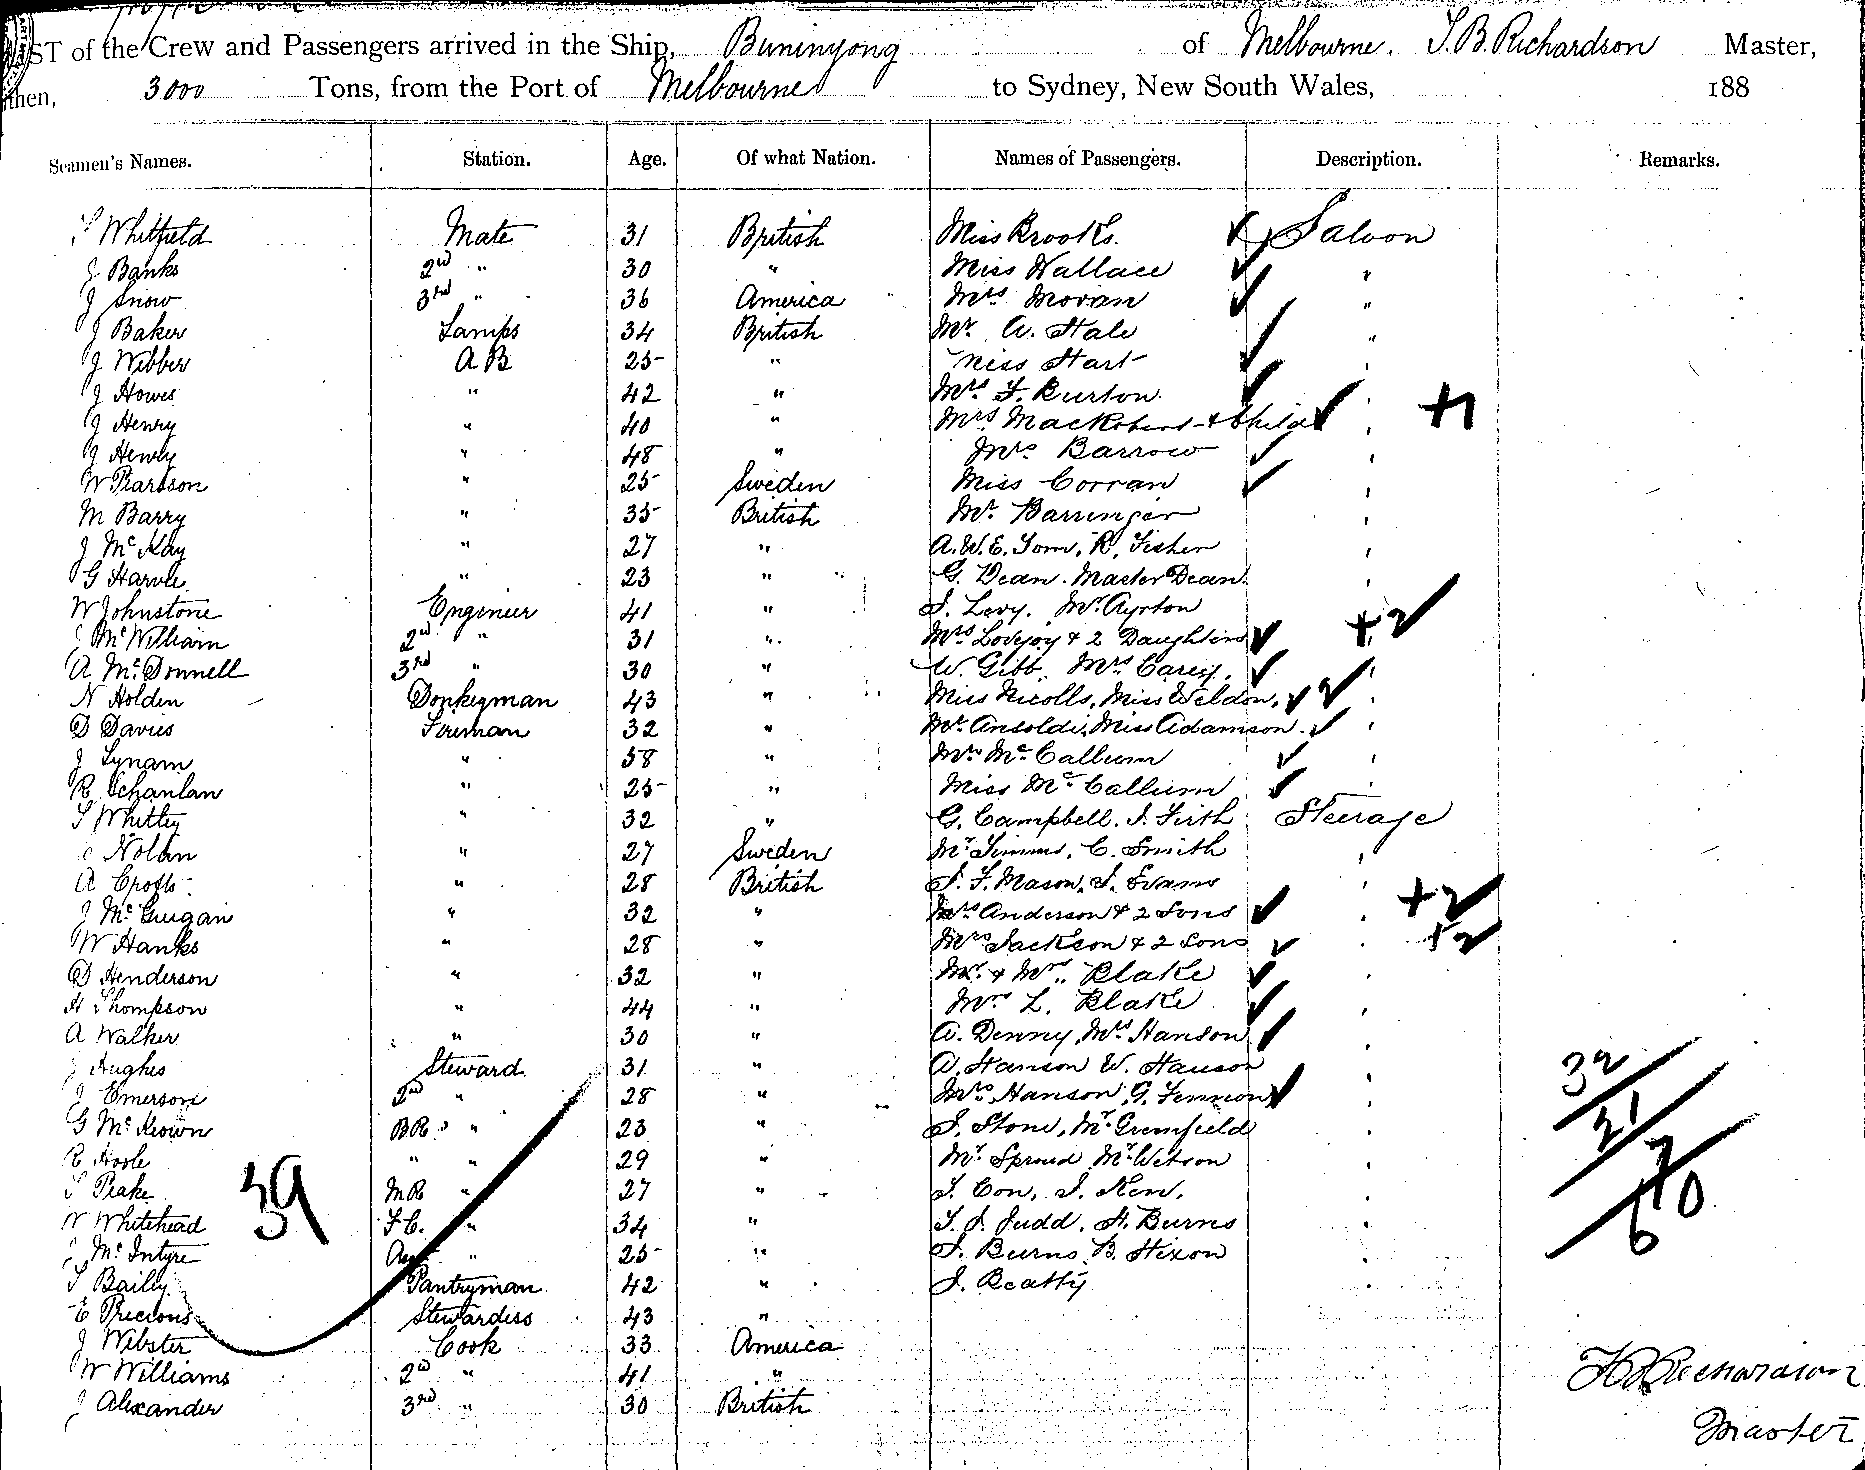 LIST of the Crew and Passengers arrived in the Ship, Buninyong of Melbourne. T.B. Richardson Master,
then, 3000 Tons, from the Port of Melbourne to Sydney, New South Wales, 188
Seamen's Names. Station. Age. Of what Nation. Names of Passengers. Description. Remarks.
Whitfield Mate 31 British Miss Brooks. Saloon
J Banks 2nd " 30 " Miss Wallace "
J Snow 3rd " 36 America Mrs Moran "
J Baker Lamps 34 British Mr. A. Hale "
J Webber A B 25 " Miss Hart "
J Howes " 42 " Mrs. F. Burton "
J Henry " 40 " Mrs & Child " +1
J Henly " 48 " Mrs. Barrow "
W Pearson " 25 Sweden Miss Corran "
M Barry " 35 British Mr. Barringer "
J McKay " 27 " A.W.E. Tom, R. Fisher "
G Harvie " 23 " G. Dean. Master Dean "
W Johnstone Engineer 41 " S. Levy. Mr. Ayrton
J McWilliam 2nd " 31 " Mrs Lovejoy & 2 Daughters +2
A McDonnell 3rd " 30 " W. Gibb, Mrs Carey. "
N Holden Donkeyman 43 " Miss Nicolls, Miss Weldon, "
D Davies Fireman 32 " Mr. Ansoldi, Miss Adamson. "
J Lynam " 58 " Mrs McCallum "
R Schanlan " 25 " Miss McCallum "
S Whitley " 32 " G. Campbell. J. Firth Steerage
Nolan " 27 Sweden Mr Simms, C. Smith "
A Crofts " 28 British J. F. Mason, J. Evans "
J McGuigan " 32 " Mrs Anderson & 2 Sons " +2
W Hanks " 28 " Mrs Jackson & 2 Sons " +2
D Henderson " 32 " Mr. & Mrs. Blake "
H Thompson " 44 " Mrs L. Blake "
A Walker " 30 " A. Denny, Mrs Hanson "
J Hughes Steward 31 " A. Hanson W. Hanson "
J Emerson 2nd " 28 " Mrs. Hanson, G. Fennion " 32
G McKeown BR " 23 " S. Stone, Mr Greenfield " 21
R Hoole " " 29 " Mr. Sproud Mr. Wetson " 7
S Peake MR " 27 " T. Con, J. Ken, " 60
39
W Whitehead F.C. " 34 " T. J. Judd, H. Burns "
J McIntyre " 25 " J. Burns B. Hixon "
S Baily Pantryman 42 " J. Beatty "
E Precious Stewardess 43 "
J Webster Cook 33 America
W Williams 2nd " 41 "
J Alexander 3rd " 30 British
Richardson
Master